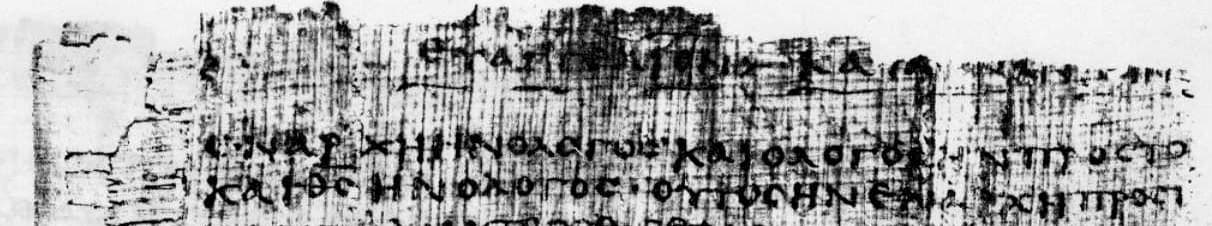 ευαγγελιον κατα
εν αρχη ην ο λογος· και ο λογος ην προς το
και θς ην ο λογος· ουτος ην εν αρχη προς τ